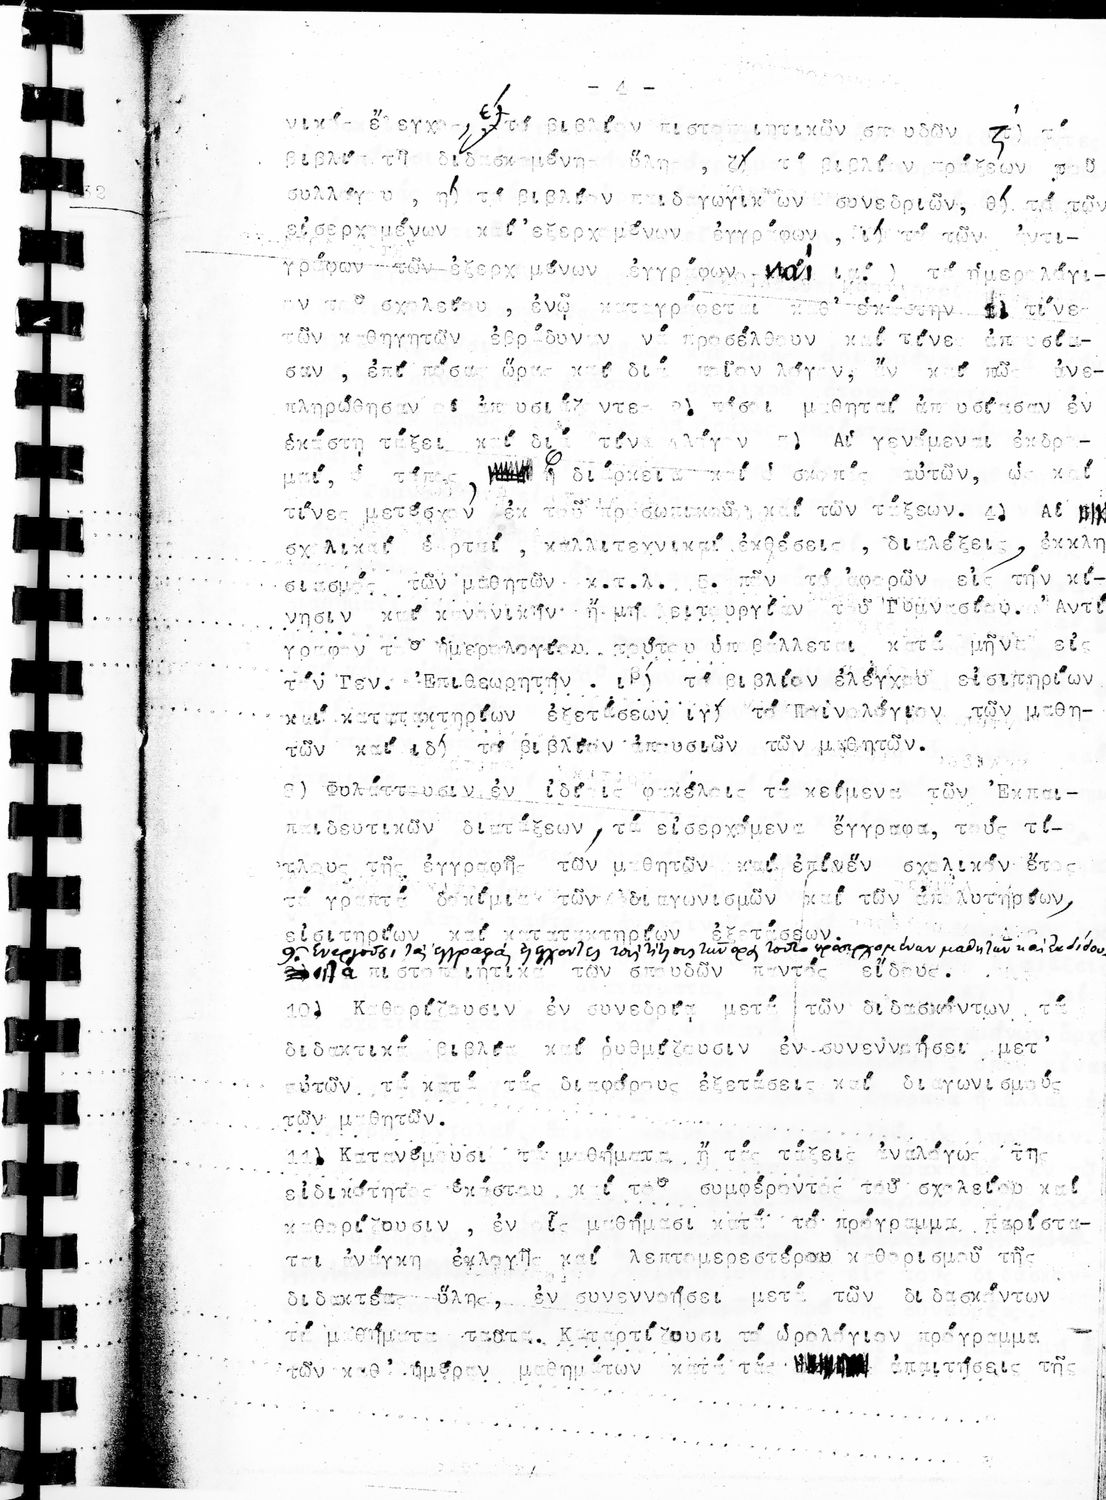 - 4 -
νικός ἔλεγχος, ἑ) τό βιβλίον πιστοποιητικῶν σπουδῶν ς) τό
βιβλίο τῆς διδασκομένης ὕλης, ζ) τό βιβλίον πράξεων τοῦ
συλλόγου, η) τό βιβλίον παιδαγωγικῶν συνεδριῶν, θ) τό τῶν
εἰσερχομένων καί ἐξερχομένων ἐγγράφων, ι) τό τῶν ἀντι-
γράφων τῶν ἐξερχομένων ἐγγράφων καί ια) τό ἡμερολόγι-
ον τοῦ σχολείου, ἐνῷ καταγράφεται καθ' ἑκάστην 1) τίνες
τῶν καθηγητῶν ἐβράδυναν νά προσέλθουν καί τίνες ἀπουσία-
σαν, ἐπί πόσας ὥρας καί διά ποῖον λόγον, ἄν καί πῶς ἀνε-
πληρώθησαν οἱ ἀπουσιάζοντες 2) πόσοι μαθηταί ἀπουσίασαν ἐν
ἑκάστη τάξει καί διά τίνα λόγον 3) Αἱ γενόμεναι ἐκδρο-
μαί, ὁ τόπος, ἡ διάρκεια καί ὁ σκοπός αὐτῶν, ὡς καί
τίνες μετέσχον ἐκ τοῦ προσωπικοῦ καί τῶν τάξεων. 4) Αἱ
σχολικαί ἑορταί, καλλιτεχνικαί ἐκθέσεις, διαλέξεις, ἐκκλη
σιασμός τῶν μαθητῶν κ.τ.λ. 5. πᾶν τό ἀφορῶν εἰς τήν κί-
νησιν καί κανονικήν ἤ μή λειτουργίαν τοῦ Γυμνασίου. Ἀντί
γραφον τοῦ ἡμερολογίου τούτου ὑποβάλλεται κατά μῆνα εἰς
τόν Γεν. Ἐπιθεωρητήν. ιβ) τό βιβλίον ἐλέγχου εἰσιτηρίων
καί κατατακτηρίων ἐξετάσεων ιγ) τό Ποινολόγιον τῶν μαθη-
τῶν καί ιδ) τό βιβλίον ἀπουσιῶν τῶν μαθητῶν.
8) Φυλάττουσιν ἐν ἰδίοις φακέλοις τά κείμενα τῶν Ἐκπαι-
παιδευτικῶν διατάξεων, τά εἰσερχόμενα ἔγγραφα, τούς τί-
τλους τῆς ἐγγραφῆς τῶν μαθητῶν καί ἐπί νέν σχολικόν ἔτος
τά γραπτά δοκίμια τῶν διαγωνισμῶν καί τῶν ἀπολυτηρίων,
εἰσιτηρίων καί κατατακτηρίων ἐξετάσεων.
9. Ἐνεργοῦσι τάς ἐγγραφάς ἐλέγχοντες τούς τίτλους τῶν πρός τοῦτο προσερχομένων μαθητῶν καί ἐκδίδου
σι τά πιστοποιητικά τῶν σπουδῶν παντός εἴδους.
10) Καθορίζουσιν ἐν συνεδρίᾳ μετά τῶν διδασκόντων τά
διδακτικά βιβλία καί ρυθμίζουσιν ἐν συνεννοήσει μετ'
αὐτῶν τά κατά τάς διαφόρους ἐξετάσεις καί διαγωνισμούς
τῶν μαθητῶν.
11) Κατανέμουσι τά μαθήματα ἤ τάς τάξεις ἀναλόγως τῆς
εἰδικότητος ἑκάστου καί τοῦ συμφέροντος τοῦ σχολείου καί
καθορίζουσιν, ἐν οἷς μαθήμασι κατά τό πρόγραμμα παρίστα-
ται ἀνάγκη ἐκλογῆς καί λεπτομερεστέρου καθορισμοῦ τῆς
διδακτέας ὕλης, ἐν συνεννοήσει μετά τῶν διδασκόντων
τά μαθήματα ταῦτα. Καταρτίζουσι τό ὡρολόγιον πρόγραμμα
τῶν καθ' ἡμέραν μαθημάτων κατά τάς ἀπαιτήσεις τῆς